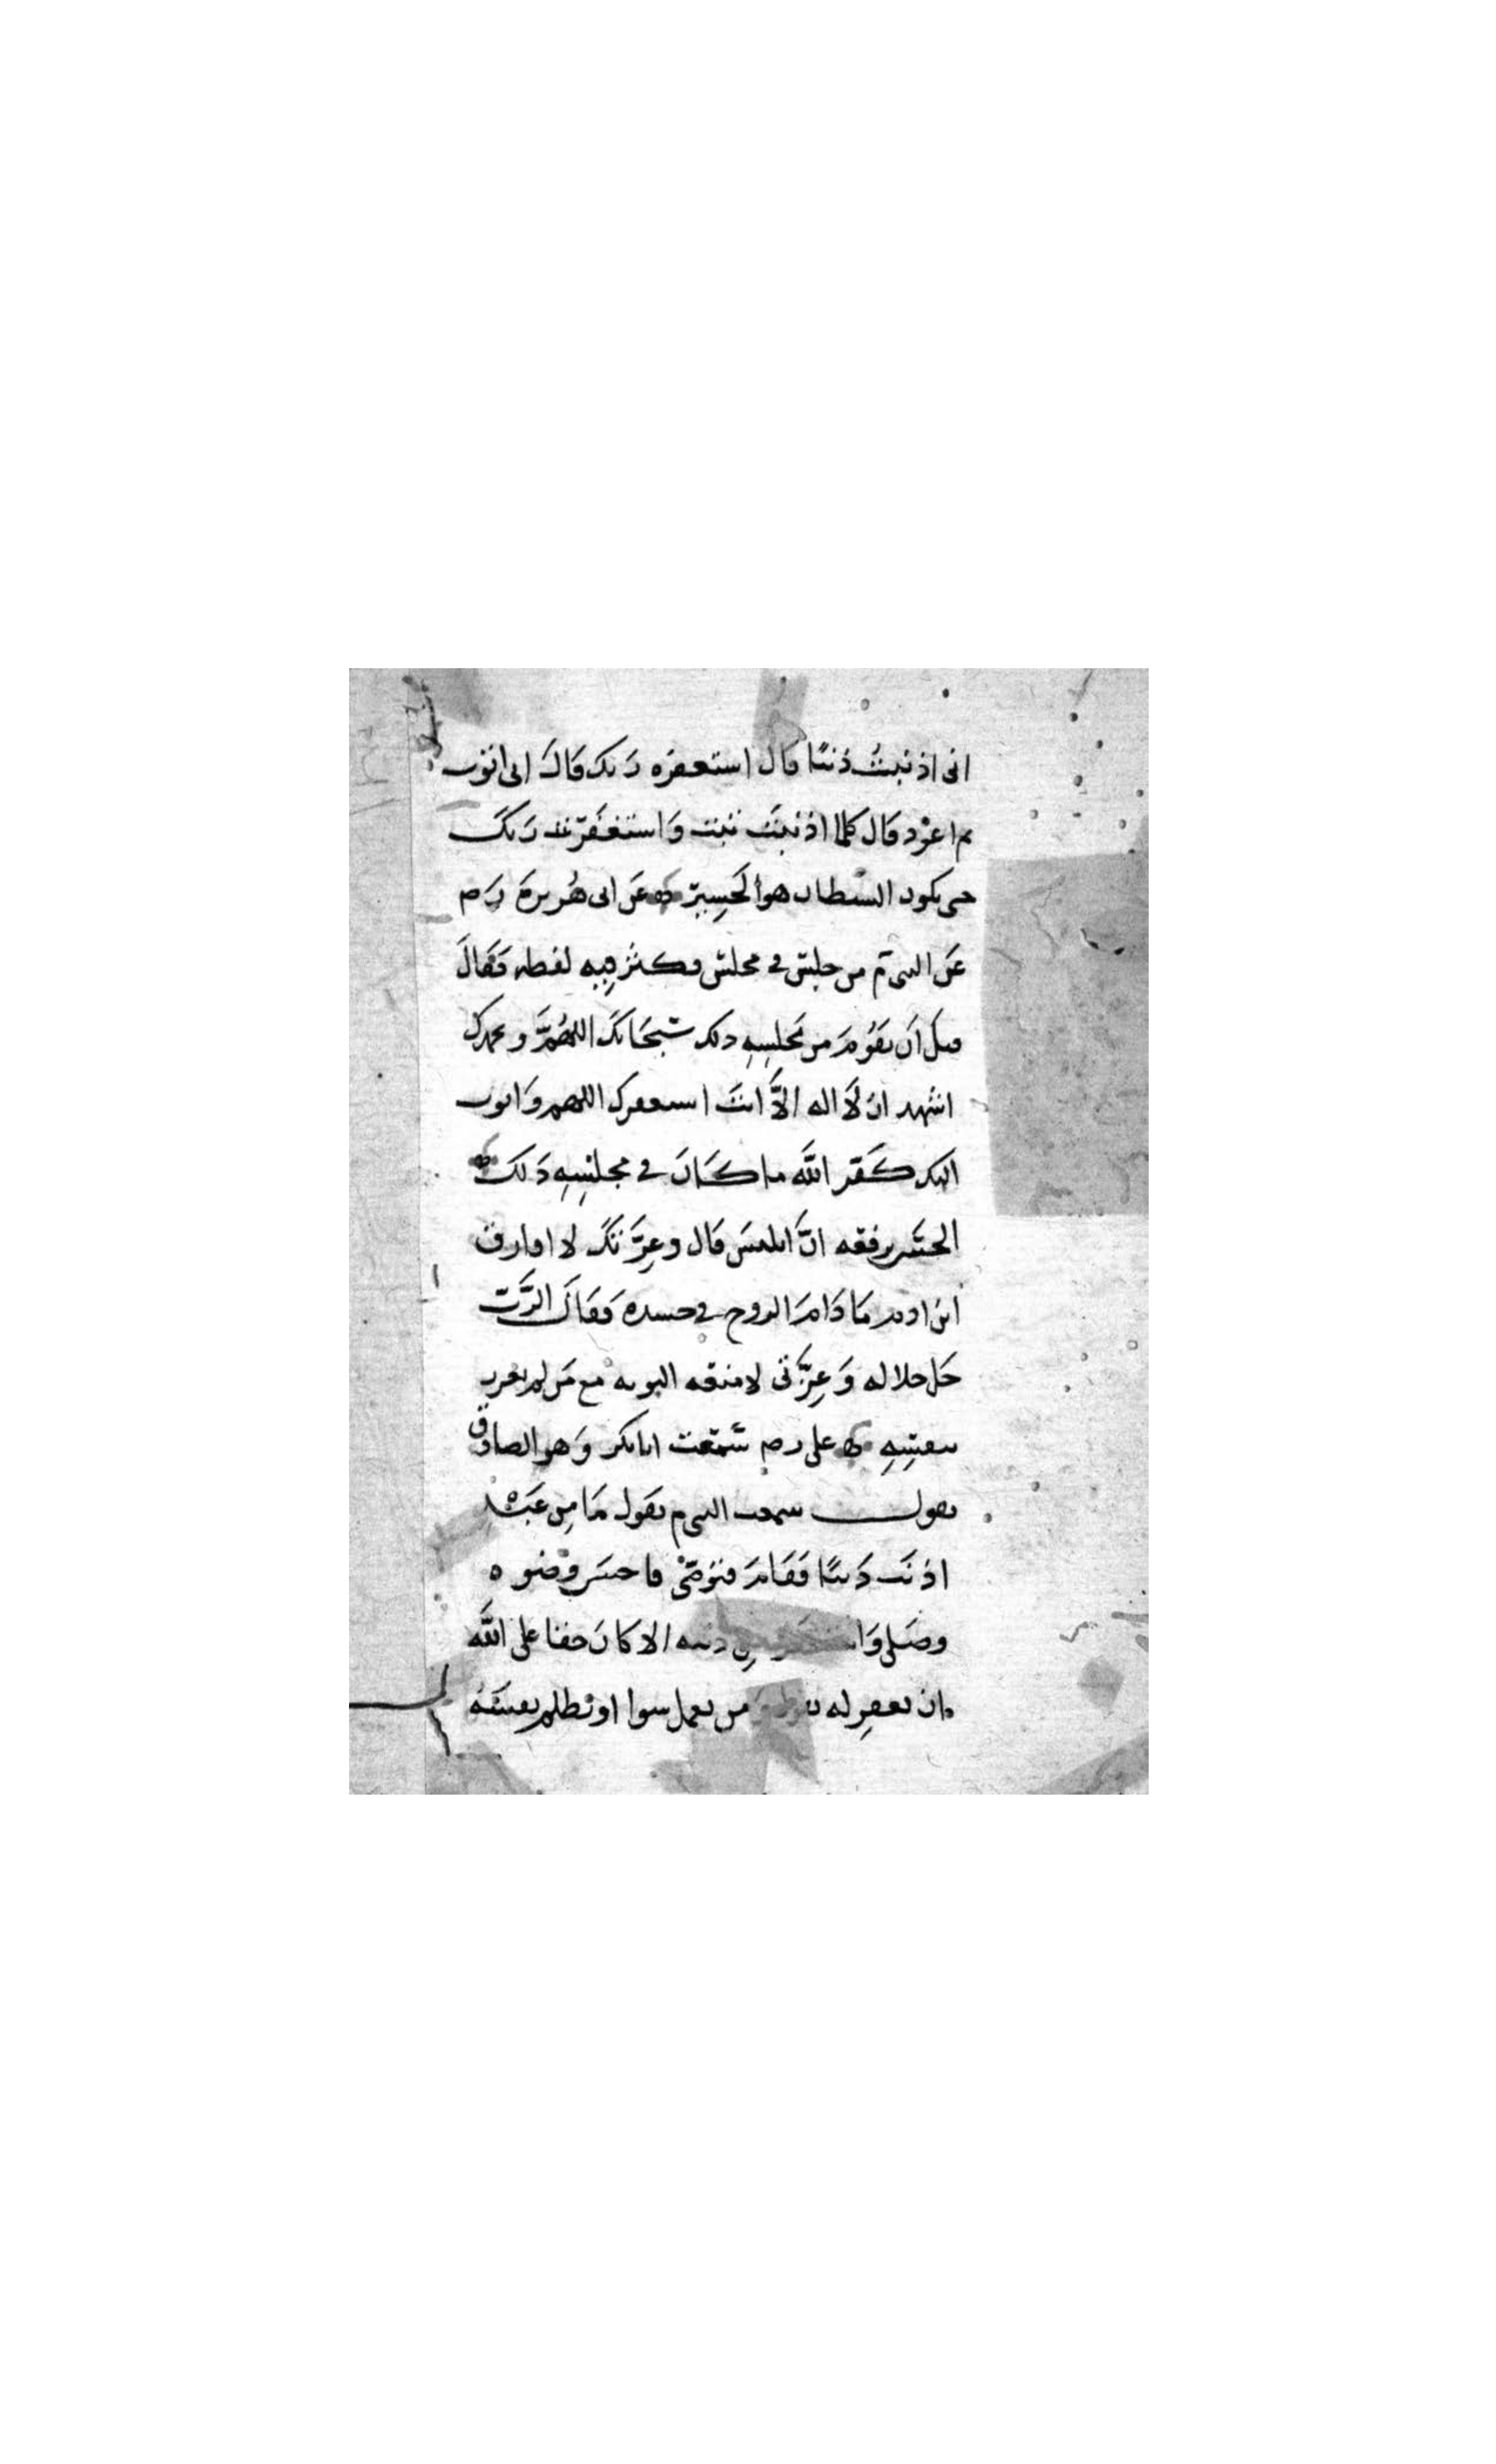 انى اذنبتُ ذنبًا قال استغفره ربك قالَ انى اتوب
ثم اعوْد قال كلما اذنبتَ تبت وَاستغفرت رَبكَ
حتى يكون الشيطان هو الحَسِير عَن ابى هُريرة رَضـ
عَن النبى م من جلسَ فى مجلس وكثر فِيه لغطه فقالَ
قبل اَن يقوُمَ من مَجلسِهِ ذلك سُبحَانكَ اللهُمَّ وبحمدك
اشهد ان لَا اله الَّا انتَ استغفرك اللهم وَاتوب
اليك كَفر اللَّه ما كَانَ فى مجلسِهِ ذَلك
الحسَن رفعه انَّ ابليسَ قال وعِزَّتكَ لا افارق
ابن ادم مَا دَامَ الروح فى جسده فقالَ الرَّب
جَل جلاله وَعِزَّتى لا منعه التوبه مَع مَن لم يغرر
بنفسِهِ على رضـ سَمعت ابا بكر وَهو الصادق
يقول سمعت النبى م يقول مَا مِن عَبْدٍ
اذنَب ذَنبًا فقَامَ فتوَضئ فاحسَن وضوه
وصَلى وَاستغفر مِن ذنبه الا كانَ حقا على اللَّه
ان يغفِر له من يعمل سوا او يظلم نفسَهُ